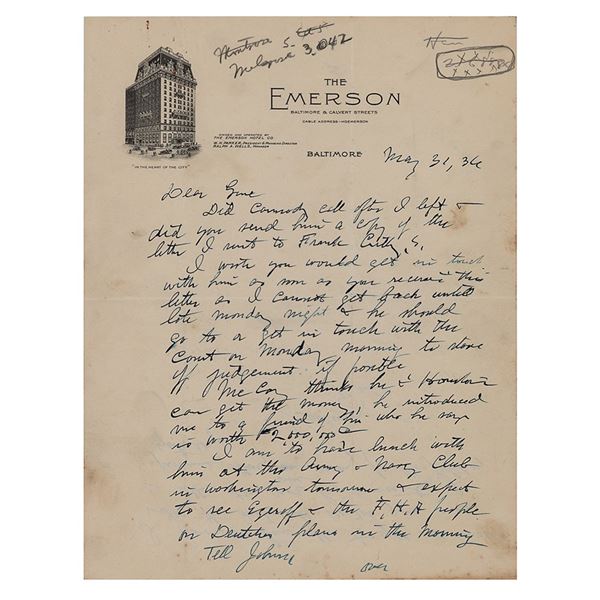 Montrose S. 
Melrose 3.042
THE
EMERSON
BALTIMORE & CALVERT STREETS
CABLE ADDRESS-HOEMERSON
OWNED AND OPERATED BY
THE EMERSON HOTEL CO.
W. H. PARKER, PRESIDENT & MANAGING DIRECTOR
RALPH A. WELLS, MANAGER
"IN THE HEART OF THE CITY"
BALTIMORE
May 31, 36
Dear Gene
Did Carmody call after I left &
did you send him a copy of the
letter I sent to Frank
I wish you would get in touch
with him as soon as you receive this
letter as I cannot get back until
late Monday night & he should
go to a get in touch with the
Court on Monday morning to stave
off judgement if posible
McCoy thinks he &
can get the money, he introduced
me to a friend of his who he says
is worth $2000,000
I am to have lunch with
him at the Army & Navy Club
in Washington tomorrow & expect
to see & the F.H.A people
on plans in the morning
Tell
over